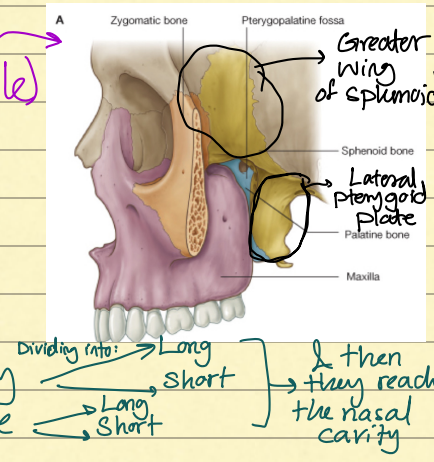 A
Zygomatic bone
Pterygopalatine fossa
Greater
wing
of sphenoid
le)
Sphenoid bone
Lateral
pterygoid
plate
Palatine bone
Maxilla
Dividing into:
Long
short
Long
Short
& then
they reach
the nasal
cavity